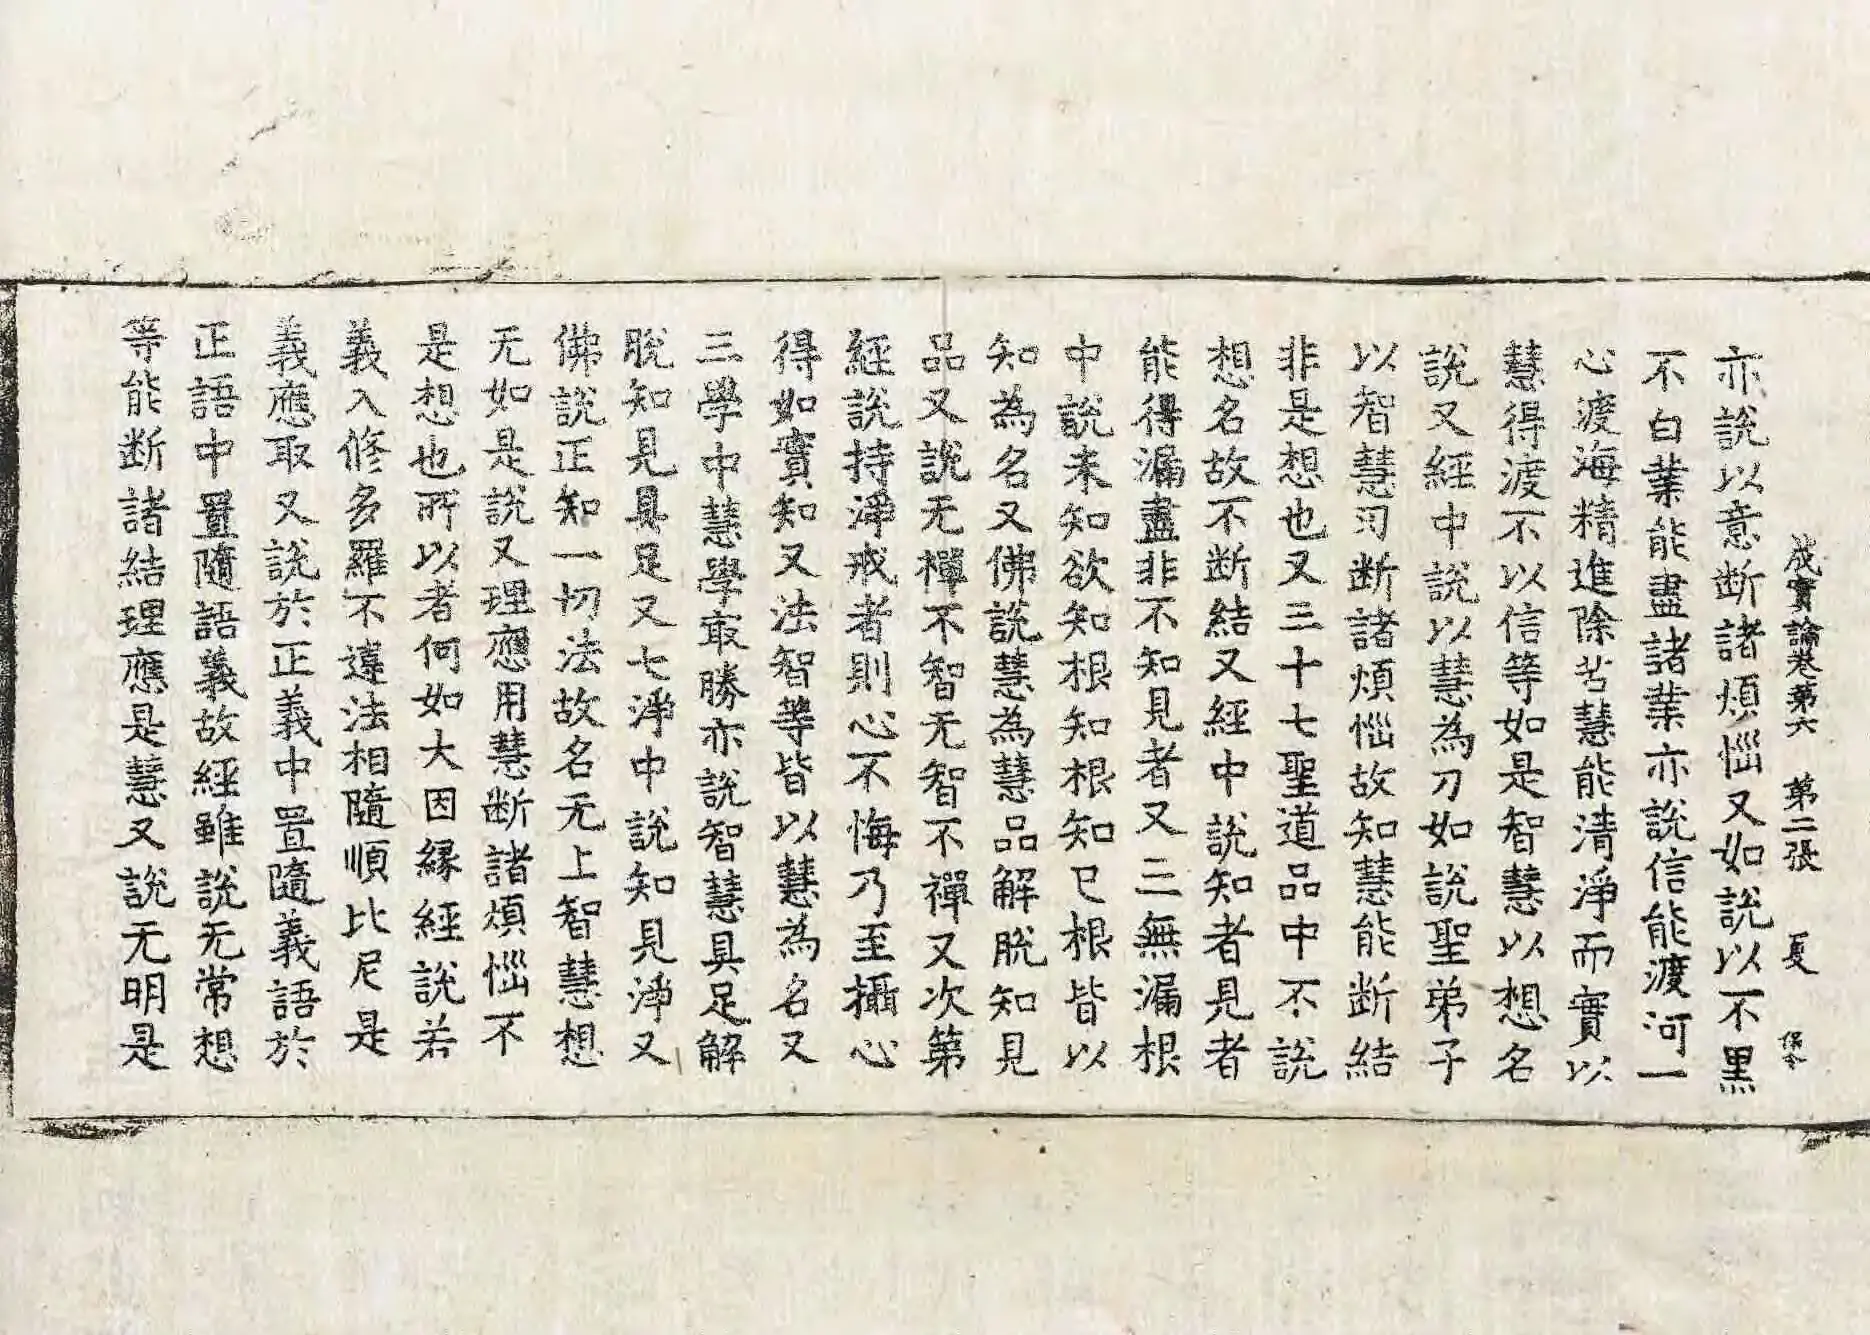 成實論卷第六　第二張　夏
亦說以意断諸煩惱又如說以不黑
不白業能盡諸業亦說信能渡河一
心渡海精進除苦慧能清淨而實以
慧得渡不以信等如是智慧以想名
說又經中說以慧為刀如說聖弟子
以智慧刀断諸煩惱故知慧能断結
非是想也又三十七聖道品中不說
想名故不断結又經中說知者見者
能得漏盡非不知見者又三無漏根
中說未知欲知根知根知已根皆以
知為名又佛說慧為慧品解脫知見
品又說无禪不智无智不禪又次第
經說持淨戒者則心不悔乃至攝心
得如實知又法智等皆以慧為名又
三學中慧學㝡勝亦說智慧具足解
脫知見具足又七淨中說知見淨又
佛說正知一切法故名无上智慧想
无如是說又理應用慧断諸煩惱不
是想也所以者何如大因緣經說若
義入修多羅不違法相隨順比尼是
義應取又說於正義中置隨義語於
正語中置隨語義故經雖說无常想
等能断諸結理應是慧又說无明是